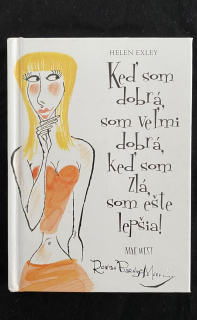 HELEN EXLEY
Keď som
dobrá,
som veľmi
dobrá,
keď som
zlá,
som ešte
lepšia!
MAE WEST